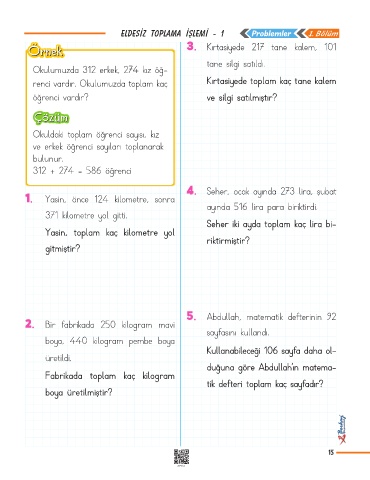 ELDESİZ TOPLAMA İŞLEMİ - 1
Problemler
1. Bölüm
Örnek
Okulumuzda 312 erkek, 274 kız öğ-
renci vardır. Okulumuzda toplam kaç
öğrenci vardır?
Çözüm
Okuldaki toplam öğrenci sayısı, kız
ve erkek öğrenci sayıları toplanarak
bulunur.
312 + 274 = 586 öğrenci
1. Yasin, önce 124 kilometre, sonra
371 kilometre yol gitti.
Yasin, toplam kaç kilometre yol
gitmiştir?
2. Bir fabrikada 250 kilogram mavi
boya, 440 kilogram pembe boya
üretildi.
Fabrikada toplam kaç kilogram
boya üretilmiştir?
3. Kırtasiyede 217 tane kalem, 101
tane silgi satıldı.
Kırtasiyede toplam kaç tane kalem
ve silgi satılmıştır?
4. Seher, ocak ayında 273 lira, şubat
ayında 516 lira para biriktirdi.
Seher iki ayda toplam kaç lira bi-
riktirmiştir?
5. Abdullah, matematik defterinin 92
sayfasını kullandı.
Kullanabileceği 106 sayfa daha ol-
duğuna göre Abdullah'ın matema-
tik defteri toplam kaç sayfadır?
15